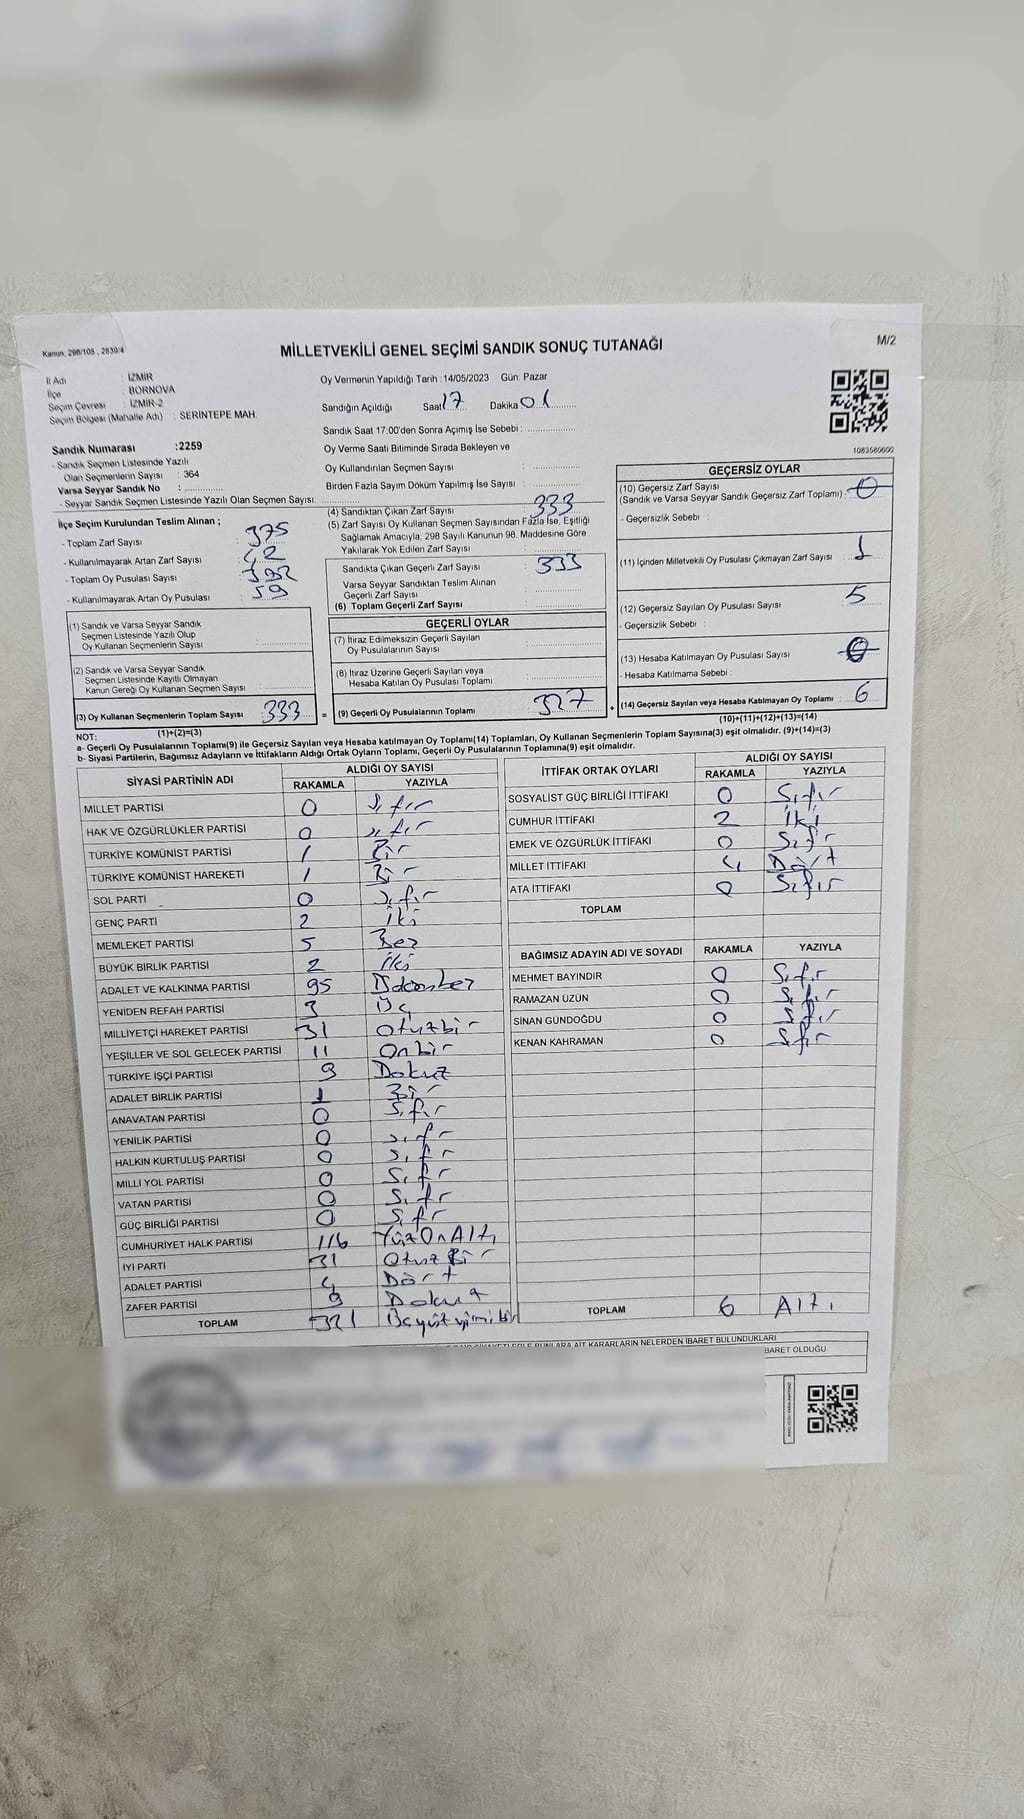 Kanun: 298/105 , 2839/4
MİLLETVEKİLİ GENEL SEÇİMİ SANDIK SONUÇ TUTANAĞI
M/2
İl Adı : İZMİR
İlçe : BORNOVA
Seçim Çevresi : İZMİR-2
Seçim Bölgesi (Mahalle Adı) : SERİNTEPE MAH.
Oy Vermenin Yapıldığı Tarih :14/05/2023 Gün: Pazar
Sandığın Açıldığı Saat 17 Dakika 01
Sandık Saat 17:00'den Sonra Açımış İse Sebebi :
Oy Verme Saati Bitiminde Sırada Bekleyen ve
Oy Kullandırılan Seçmen Sayısı :
Birden Fazla Sayım Döküm Yapılmış İse Sayısı :
1083580600
Sandık Numarası :2259
- Sandık Seçmen Listesinde Yazılı
Olan Seçmenlerin Sayısı : 364
Varsa Seyyar Sandık No :
- Seyyar Sandık Seçmen Listesinde Yazılı Olan Seçmen Sayısı:
İlçe Seçim Kurulundan Teslim Alınan ;
- Toplam Zarf Sayısı : 375
- Kullanılmayarak Artan Zarf Sayısı : 42
- Toplam Oy Pusulası Sayısı : 392
- Kullanılmayarak Artan Oy Pusulası : 59
(1) Sandık ve Varsa Seyyar Sandık
Seçmen Listesinde Yazılı Olup
Oy Kullanan Seçmenlerin Sayısı :
(2) Sandık ve Varsa Seyyar Sandık
Seçmen Listesinde Kayıtlı Olmayan
Kanun Gereği Oy Kullanan Seçmen Sayısı :
(3) Oy Kullanan Seçmenlerin Toplam Sayısı 333 =
(1)+(2)=(3)
(4) Sandıktan Çıkan Zarf Sayısı : 333
(5) Zarf Sayısı Oy Kullanan Seçmen Sayısından Fazla İse, Eşitliği
Sağlamak Amacıyla, 298 Sayılı Kanunun 98. Maddesine Göre
Yakılarak Yok Edilen Zarf Sayısı :
Sandıkta Çıkan Geçerli Zarf Sayısı : 333
Varsa Seyyar Sandıktan Teslim Alınan
Geçerli Zarf Sayısı :
(6) Toplam Geçerli Zarf Sayısı :
GEÇERLİ OYLAR
(7) İtiraz Edilmeksizin Geçerli Sayılan
Oy Pusulalarının Sayısı :
(8) İtiraz Üzerine Geçerli Sayılan veya
Hesaba Katılan Oy Pusulası Toplamı :
(9) Geçerli Oy Pusulalarının Toplamı : 327 +
GEÇERSİZ OYLAR
(10) Geçersiz Zarf Sayısı
(Sandık ve Varsa Seyyar Sandık Geçersiz Zarf Toplamı) : 0
- Geçersizlik Sebebi :
(11) İçinden Milletvekili Oy Pusulası Çıkmayan Zarf Sayısı : 1
(12) Geçersiz Sayılan Oy Pusulası Sayısı : 5
- Geçersizlik Sebebi :
(13) Hesaba Katılmayan Oy Pusulası Sayısı : 0
- Hesaba Katılmama Sebebi :
(14) Geçersiz Sayılan veya Hesaba Katılmayan Oy Toplamı : 6
(10)+(11)+(12)+(13)=(14)
NOT:
a- Geçerli Oy Pusulalarının Toplamı(9) ile Geçersiz Sayılan veya Hesaba katılmayan Oy Toplamı(14) Toplamları, Oy Kullanan Seçmenlerin Toplam Sayısına(3) eşit olmalıdır. (9)+(14)=(3)
b- Siyasi Partilerin, Bağımsız Adayların ve İttifakların Aldığı Ortak Oyların Toplamı, Geçerli Oy Pusulalarının Toplamına(9) eşit olmalıdır.
SİYASİ PARTİNİN ADI ALDIĞI OY SAYISI
RAKAMLA YAZIYLA
MİLLET PARTİSİ 0 Sıfır
HAK VE ÖZGÜRLÜKLER PARTİSİ 0 Sıfır
TÜRKİYE KOMÜNİST PARTİSİ 1 Bir
TÜRKİYE KOMÜNİST HAREKETİ 1 Bir
SOL PARTİ 0 Sıfır
GENÇ PARTİ 2 İki
MEMLEKET PARTİSİ 5 Beş
BÜYÜK BİRLİK PARTİSİ 2 İki
ADALET VE KALKINMA PARTİSİ 95 Doksanbeş
YENİDEN REFAH PARTİSİ 3 Üç
MİLLİYETÇİ HAREKET PARTİSİ 31 Otuzbir
YEŞİLLER VE SOL GELECEK PARTİSİ 11 Onbir
TÜRKİYE İŞÇİ PARTİSİ 9 Dokuz
ADALET BİRLİK PARTİSİ 1 Bir
ANAVATAN PARTİSİ 0 Sıfır
YENİLİK PARTİSİ 0 Sıfır
HALKIN KURTULUŞ PARTİSİ 0 Sıfır
MİLLİ YOL PARTİSİ 0 Sıfır
VATAN PARTİSİ 0 Sıfır
GÜÇ BİRLİĞİ PARTİSİ 0 Sıfır
CUMHURİYET HALK PARTİSİ 116 YüzOnAltı
İYİ PARTİ 31 OtuzBir
ADALET PARTİSİ 4 Dört
ZAFER PARTİSİ 9 Dokuz
TOPLAM 321 Üçyüzyirmibir
İTTİFAK ORTAK OYLARI ALDIĞI OY SAYISI
RAKAMLA YAZIYLA
SOSYALİST GÜÇ BİRLİĞİ İTTİFAKI 0 Sıfır
CUMHUR İTTİFAKI 2 İki
EMEK VE ÖZGÜRLÜK İTTİFAKI 0 Sıfır
MİLLET İTTİFAKI 4 Dört
ATA İTTİFAKI 0 Sıfır
TOPLAM
BAĞIMSIZ ADAYIN ADI VE SOYADI RAKAMLA YAZIYLA
MEHMET BAYINDIR 0 Sıfır
RAMAZAN UZÜN 0 Sıfır
SİNAN GÜNDOĞDU 0 Sıfır
KENAN KAHRAMAN 0 Sıfır
TOPLAM 6 Altı
BUNLARA AİT KARARLARIN NELERDEN İBARET BULUNDUKLARI
BARET OLDUĞU